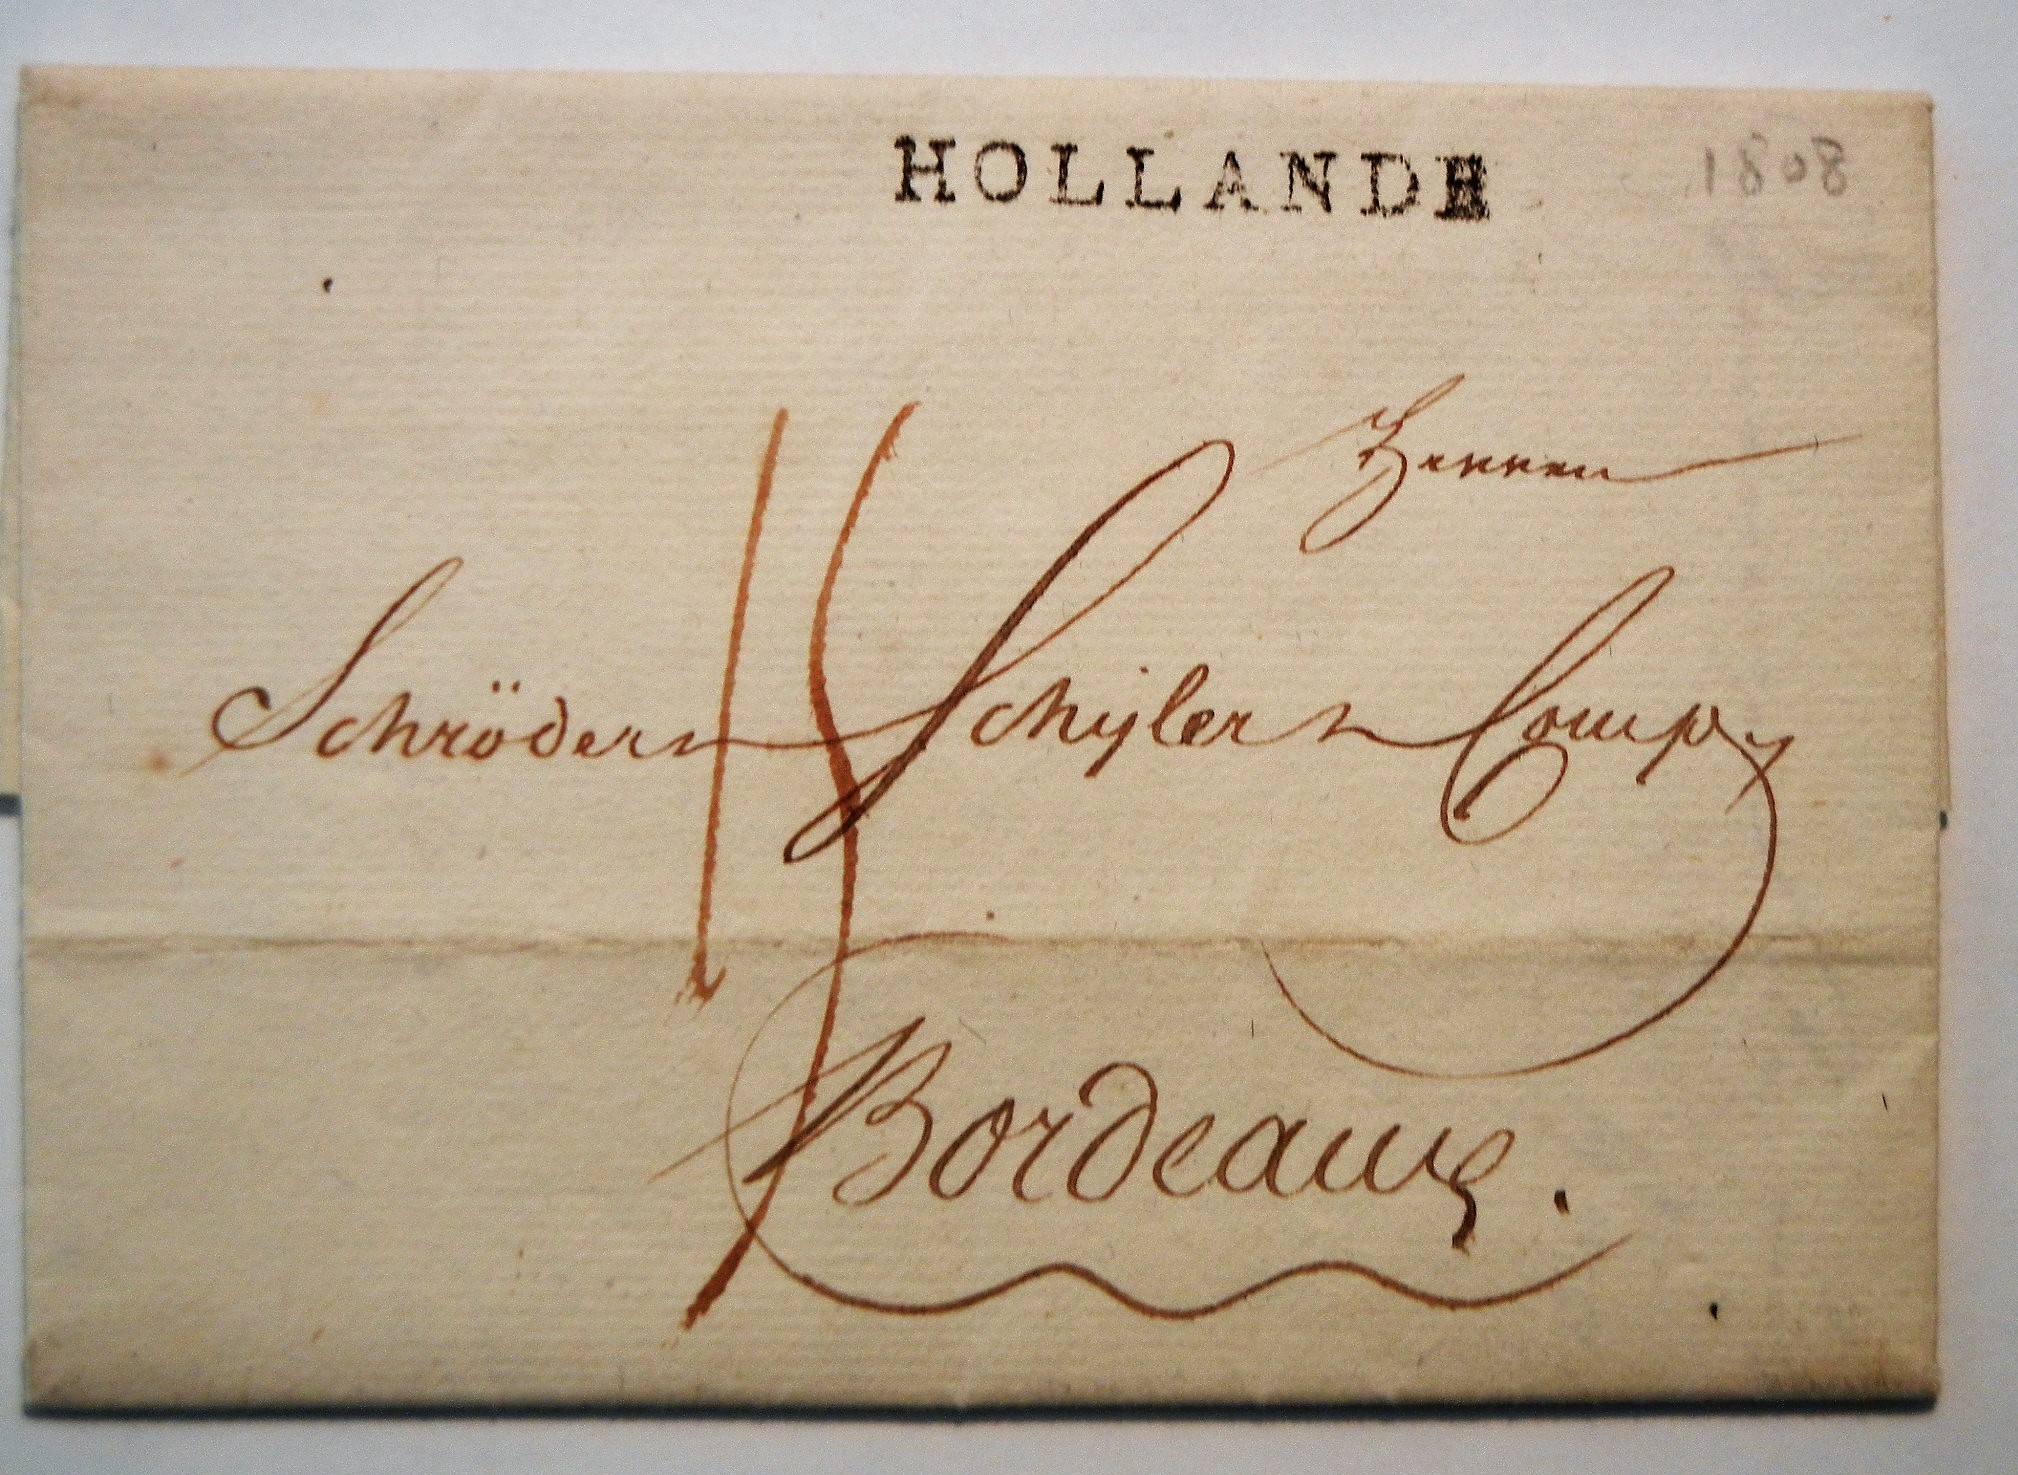 HOLLANDE
1808
Herren
Schröder Schÿler Compy
Bordeaux.